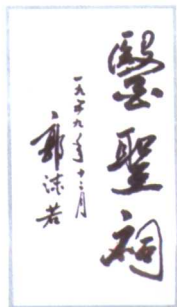 醫聖祠
一九五九年十二月
郭沫若